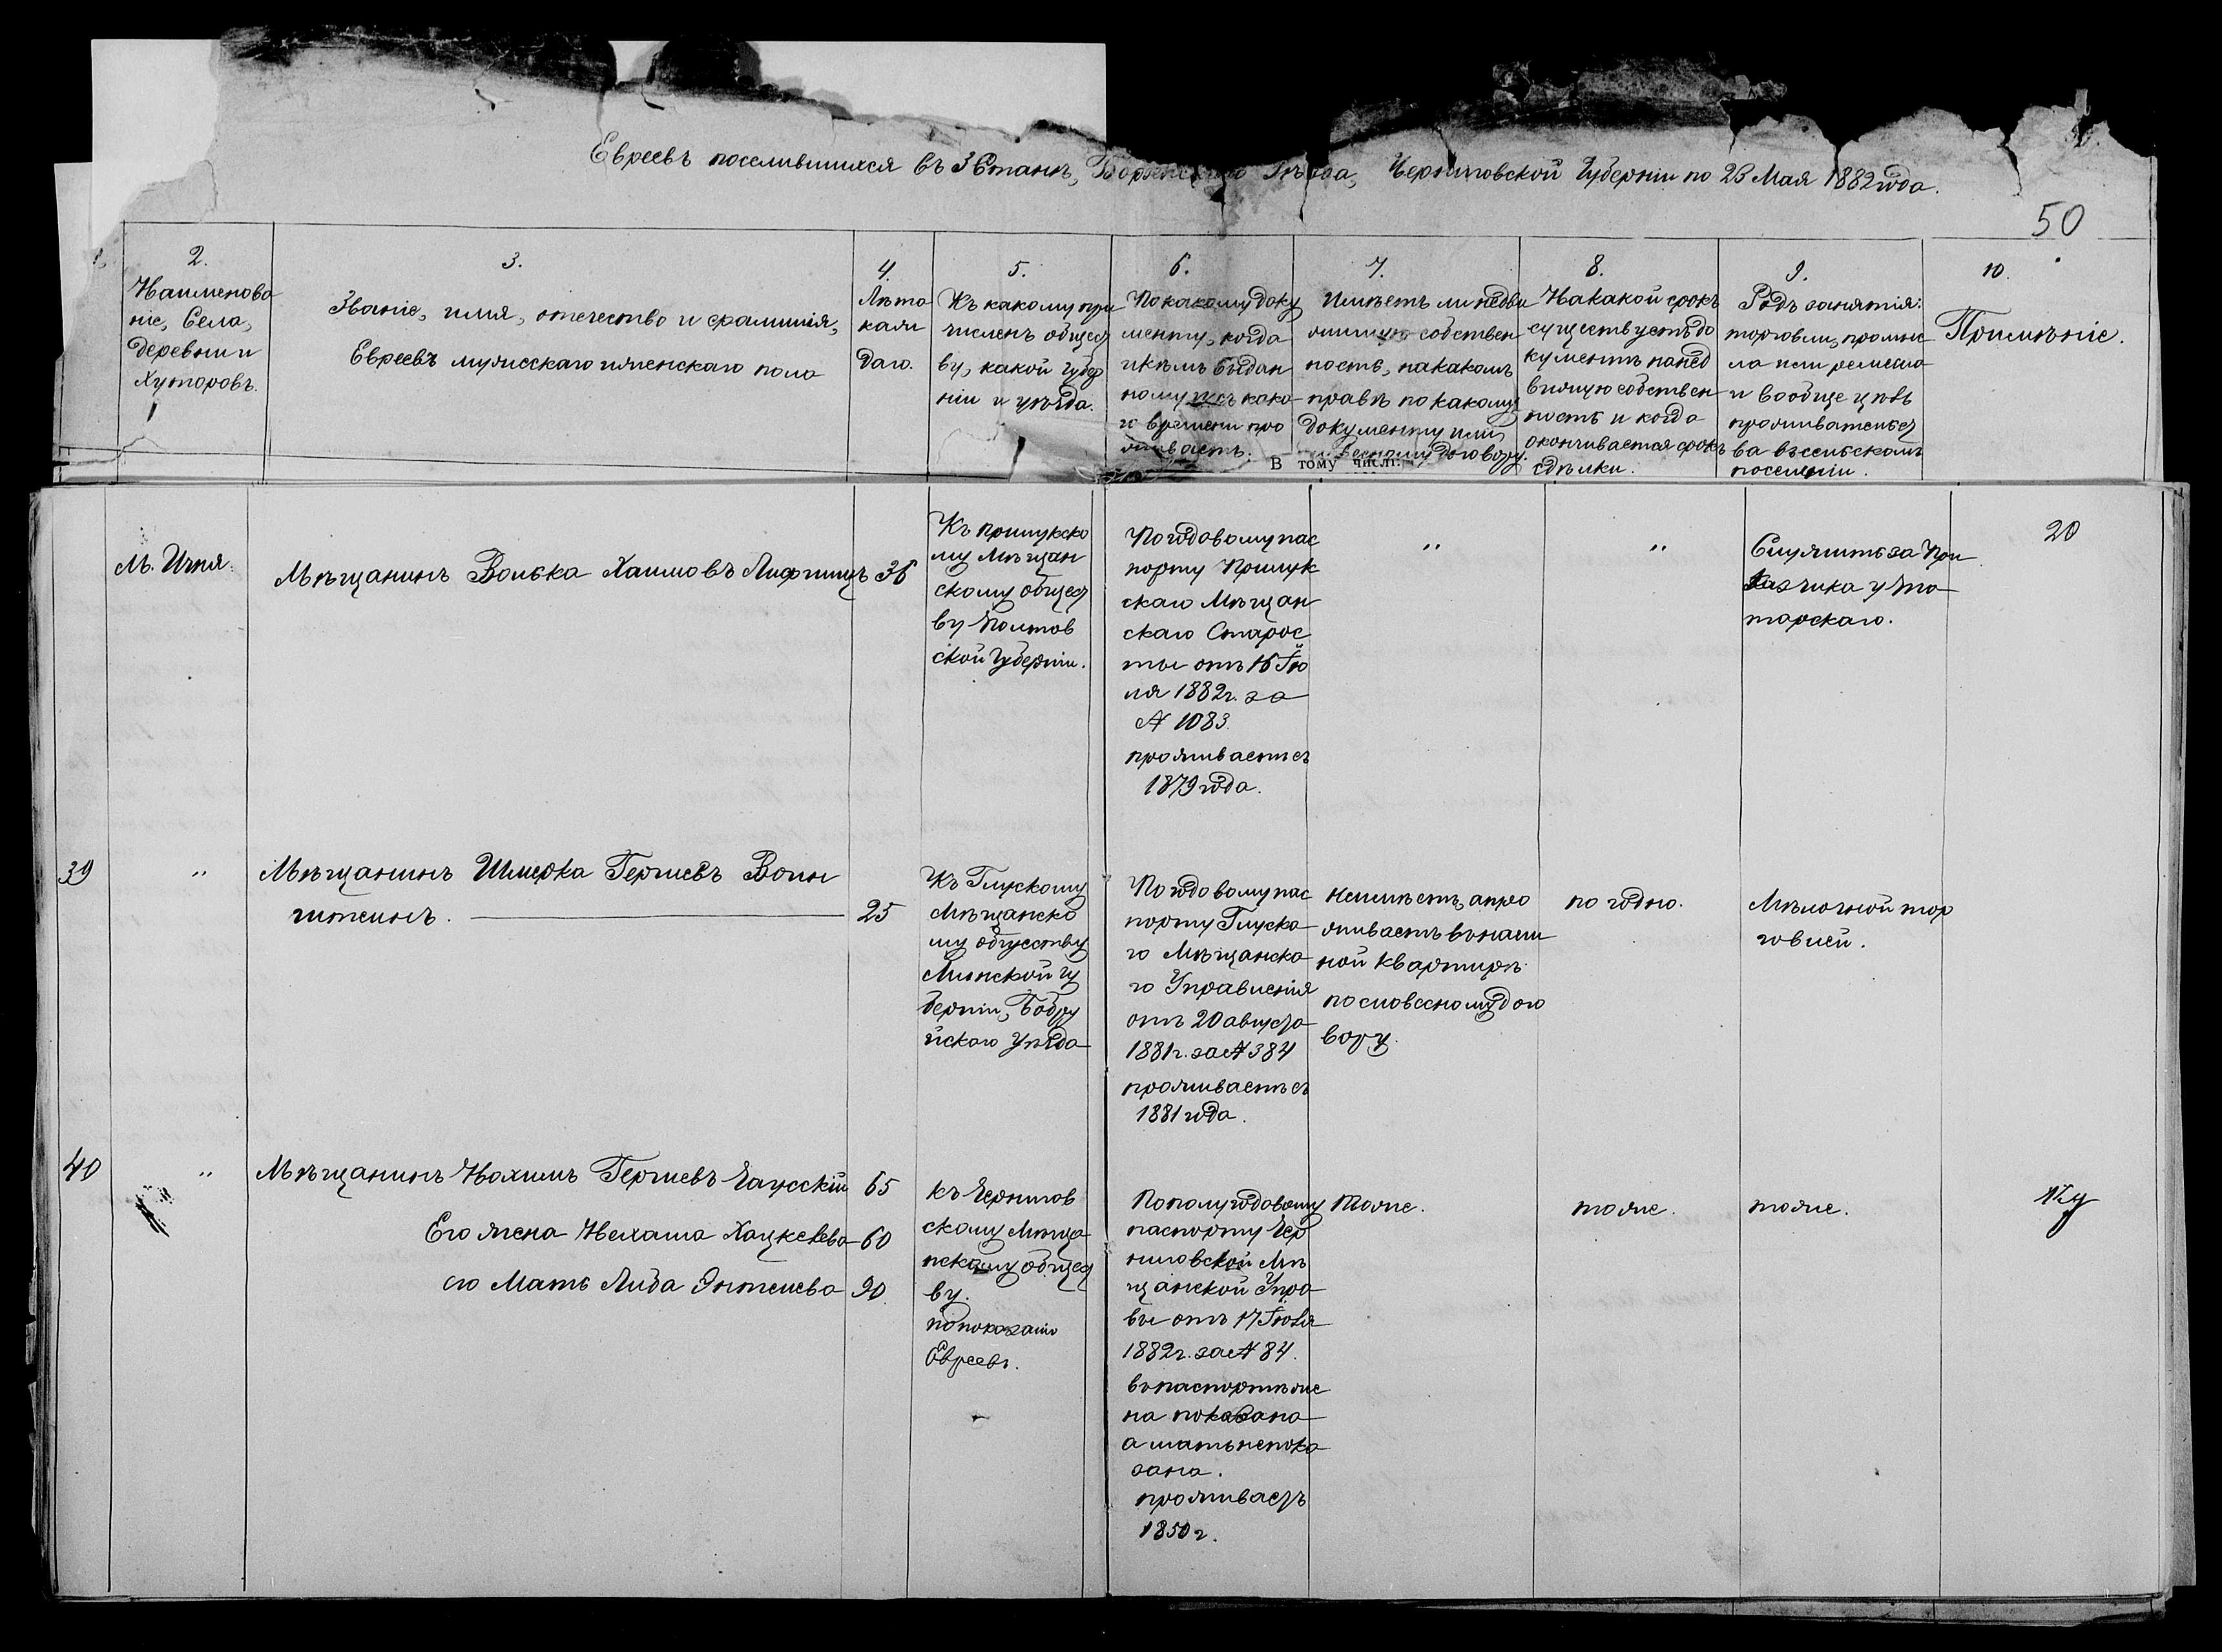 Евреевъ поселившихся въ 3 Станѣ, Борзенскаго Уѣзда, Черниговской Губерніи по 23 Мая 1882 года.
50
2.
Наименова
ніе, Села,
деревни и
Хуторовъ.
3.
Званіе, имя, отечество и фамилія,
Евреевъ мужескаго и женскаго пола
4.
Лѣта
кажи
даго.
5.
Къ какому при
численъ общест
ву, какой губер
ніи и уѣзда.
6.
По какому доку
менту, когда
и кѣмъ выдан
ному и съ како
го времени про
живаетъ.
7.
Имѣетъ ли недви
жимую собствен
ность, на какомъ
правѣ по какому
документу или
словесному договору.
В тому числі:
8.
На какой срокъ
существуетъ до
кументъ на нед
вижимую собствен
ность и когда
оканчивается срокъ
сдѣлки.
9.
Родъ занятія:
торговли, промыс
ла или ремесла
и вообще цѣль
проживательст
ва въ сельскомъ
поселеніи.
10.
Примѣніе.
М. Ичня.
Мѣщанинъ Волька Хаимовъ Лифшицъ 36
Къ Прилукско
му Мѣщан
скому общест
ву Полтов
ской губерніи.
По годовому пас
порту Прилук
скаго Мѣщан
скаго Старос
ты отъ 16 Iю
ля 1882 г. за
№ 1083.
проживаетъ съ
1879 года.
"
"
Служитъ за При
казчика у Та
тарскаго.
20
39
"
Мѣщанинъ Шмерка Гершевъ Вонн
штейнъ. 25
Къ Глускому
Мѣщанско
му обществу
Минской гу
берніи, Бобру
йскаго уѣзда
По годовому пас
порту Глуска
го Мѣщанска
го Управленія
отъ 20 августа
1881 г. за № 384
проживаетъ съ
1881 года.
неимѣетъ, а про
живаетъ въ наем
ной квартирѣ
по словесному дого
вору.
по годно.
Мѣлочной тор
говлей.
40
"
Мѣщанинъ Нахимъ Гершевъ Чаусскій 65
Его жена Нехама Хацкелева 60
его Мать Либа Энтелева 90
къ Чернигов
скому Мѣща
нскому общест
ву.
по показанію
Евреевъ.
По полугодовому
паспорту Чер
ниговской Мѣ
щанской Упра
вы отъ 17 Iюля
1882 г. за № 84.
въ паспортѣ же
на показана
а мать непока
зана.
проживаетъ
1850 г.
тоже.
тоже.
тоже.